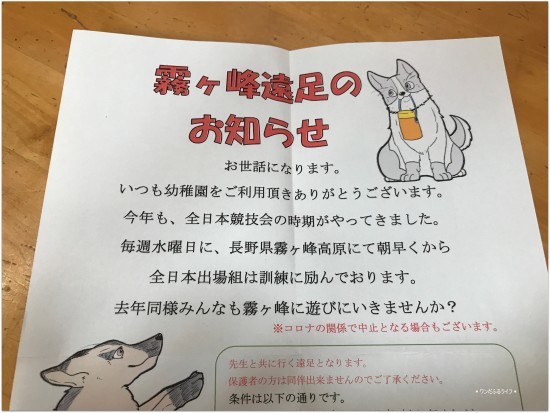 霧ヶ峰遠足の
お知らせ
お世話になります。
いつも幼稚園をご利用頂きありがとうございます。
今年も、全日本競技会の時期がやってきました。
毎週水曜日に、長野県霧ヶ峰高原にて朝早くから
全日本出場組は訓練に励んでおります。
去年同様みんなも霧ヶ峰に遊びにいきませんか？
※コロナの関係で中止となる場合もございます。
先生と共に行く遠足となります。
保護者の方は同伴出来ませんのでご了承ください。
条件は以下の通りです。